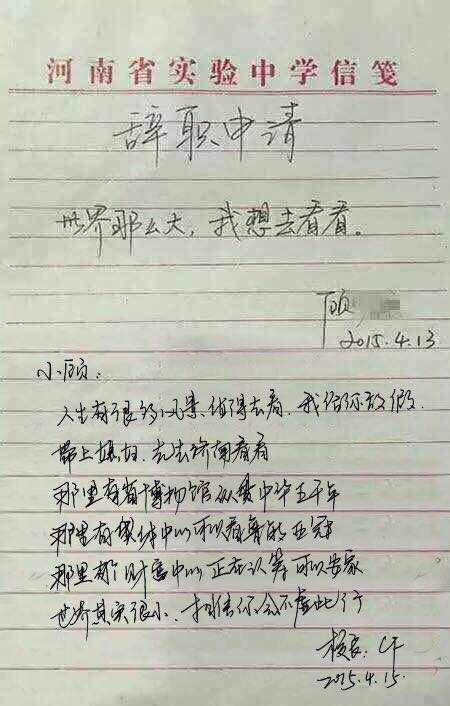 河南省实验中学信笺
辞职申请
世界那么大，我想去看看。
顾
2015.4.13
小顾：
人生有很多风景值得去看，我给你放假.
带上媳妇，先去济南看看
那里有省博物馆纵贯中华五千年
那里有体中心可以看鲁能亚冠
那里有财富中心正在认筹可以安家
世界其实很小，相信你会不虚此行
校长：
2015.4.15